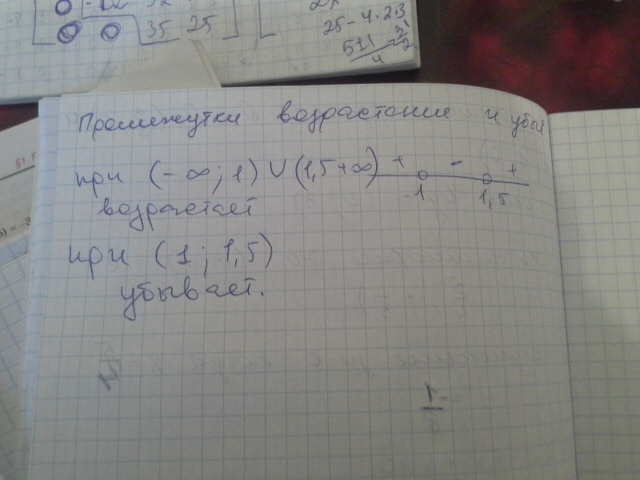 35 25
25-4·2·3
Промежутки возрастание и убыв
при (-∞; 1) ∪ (1,5 +∞) + - +
1 1,5
возрастает
при (1; 1,5)
убывает.